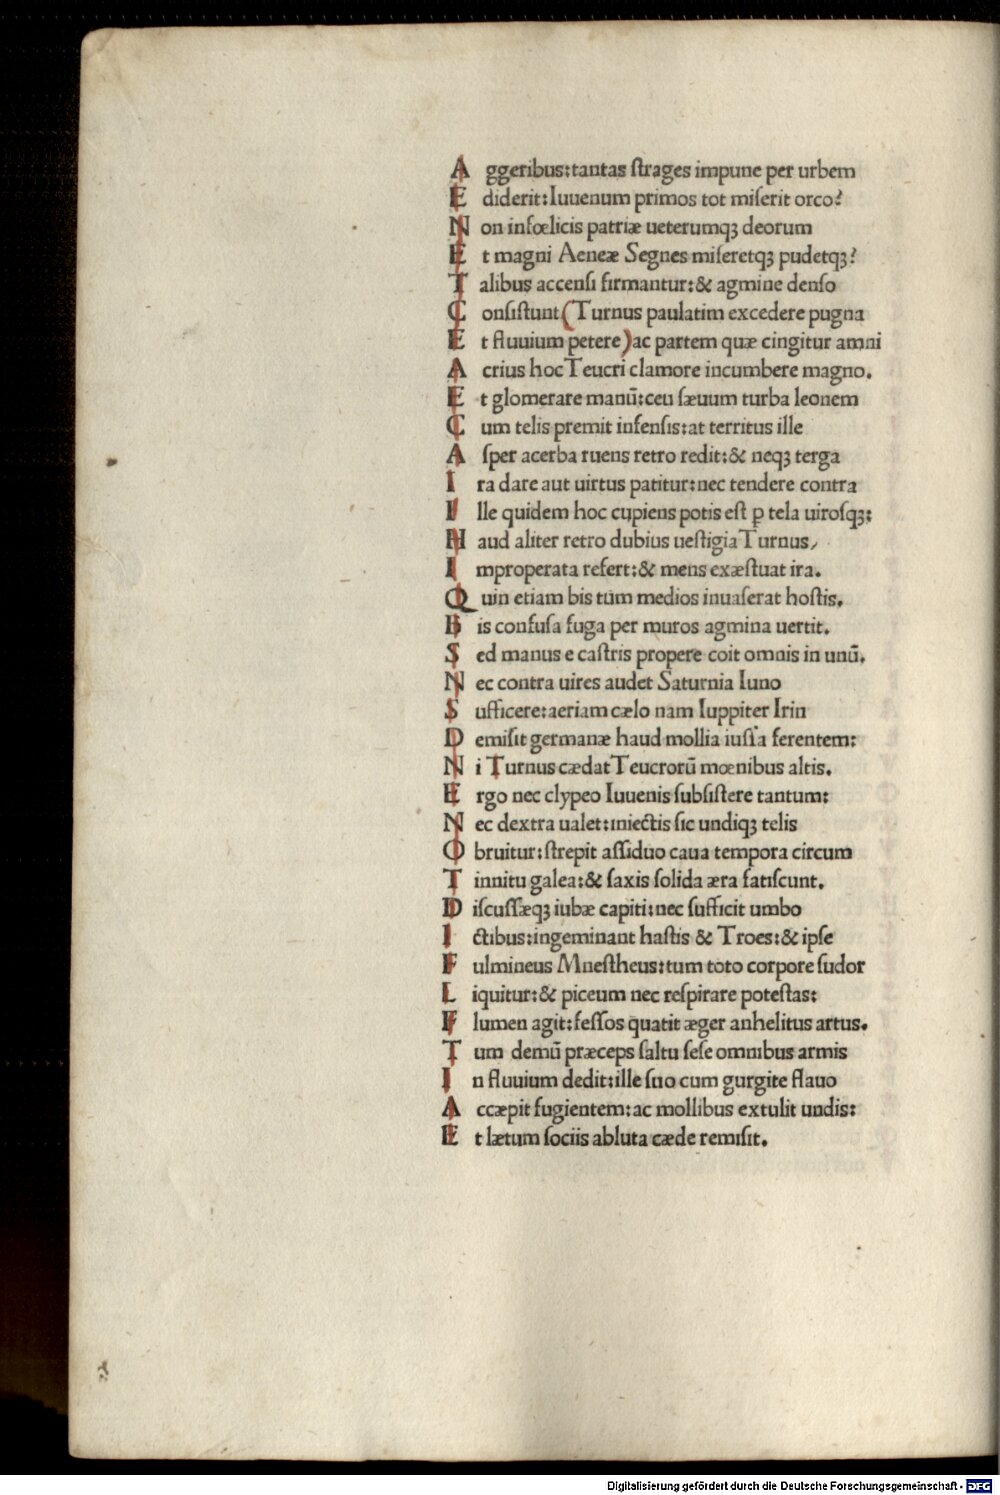 Aggeribus:tantas ſtrages impune per urbem
Ediderit:Iuuenum primos tot miſerit orco?
Non infœlicis patriæ ueterumqꝫ deorum
Et magni Aeneæ Segnes miſeretqꝫ pudetqꝫ?
Talibus accenſi firmantur:& agmine denſo
Conſiſtunt(Turnus paulatim excedere pugna
Et fluuium petere)ac partem quæ cingitur amni
Acrius hoc Teucri clamore incumbere magno.
Et glomerare manū:ceu ſæuum turba leonem
Cum telis premit infenſis:at territus ille
Aſper acerba ruens retro redit:& neqꝫ terga
Ira dare aut uirtus patitur:nec tendere contra
Ille quidem hoc cupiens potis eſt ꝑ tela uiroſqꝫ:
Haud aliter retro dubius ueſtigia Turnus/
Improperata refert:& mens exæſtuat ira.
Quin etiam bis tum medios inuaſerat hoſtis.
Bis confuſa fuga per muros agmina uertit.
Sed manus e caſtris propere coit omnis in unū.
Nec contra uires audet Saturnia Iuno
Sufficere:aeriam cælo nam Iuppiter Irin
Demiſit germanæ haud mollia iuſſa ferentem:
Ni Turnus cædat Teucrorū mœnibus altis.
Ergo nec clypeo Iuuenis ſubſiſtere tantum:
Nec dextra ualet:iniectis ſic undiqꝫ telis
Obruitur:ſtrepit aſſiduo caua tempora circum
Tinnitu galea:& ſaxis ſolida æra fatiſcunt.
Diſcuſſæqꝫ iubæ capiti:nec ſufficit umbo
Ictibus:ingeminant haſtis & Troes:& ipſe
Fulmineus Mneſtheus:tum toto corpore ſudor
Liquitur:& piceum nec reſpirare poteſtas:
Flumen agit:feſſos quatit æger anhelitus artus.
Tum demū præceps ſaltu ſeſe omnibus armis
In fluuium dedit:ille ſuo cum gurgite flauo
Accæpit fugientem:ac mollibus extulit undis:
Et lætum ſociis abluta cæde remiſit.
Digitalisierung gefördert durch die Deutsche Forschungsgemeinschaft - DFG